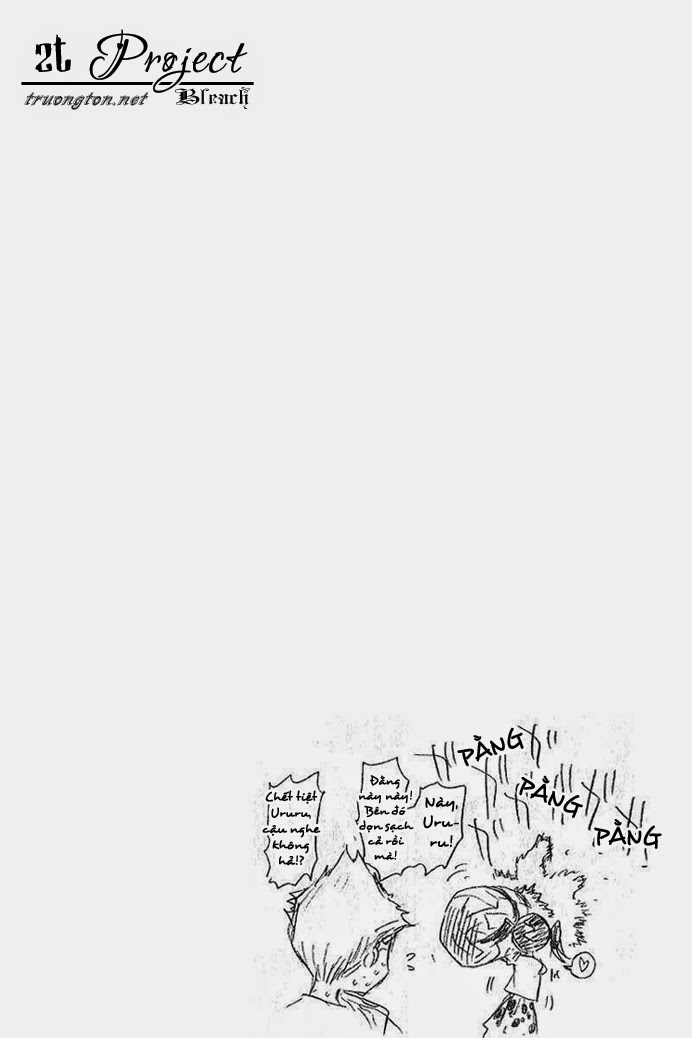 2t Project
truongton.net Bleach
PẰNG
PẰNG
PẰNG
Này,
Uru-
ru!
Đằng
này này!
Bên đó
dọn sạch
cả rồi
mà!
Chết tiệt
Ururu,
cậu nghe
không
hả!?